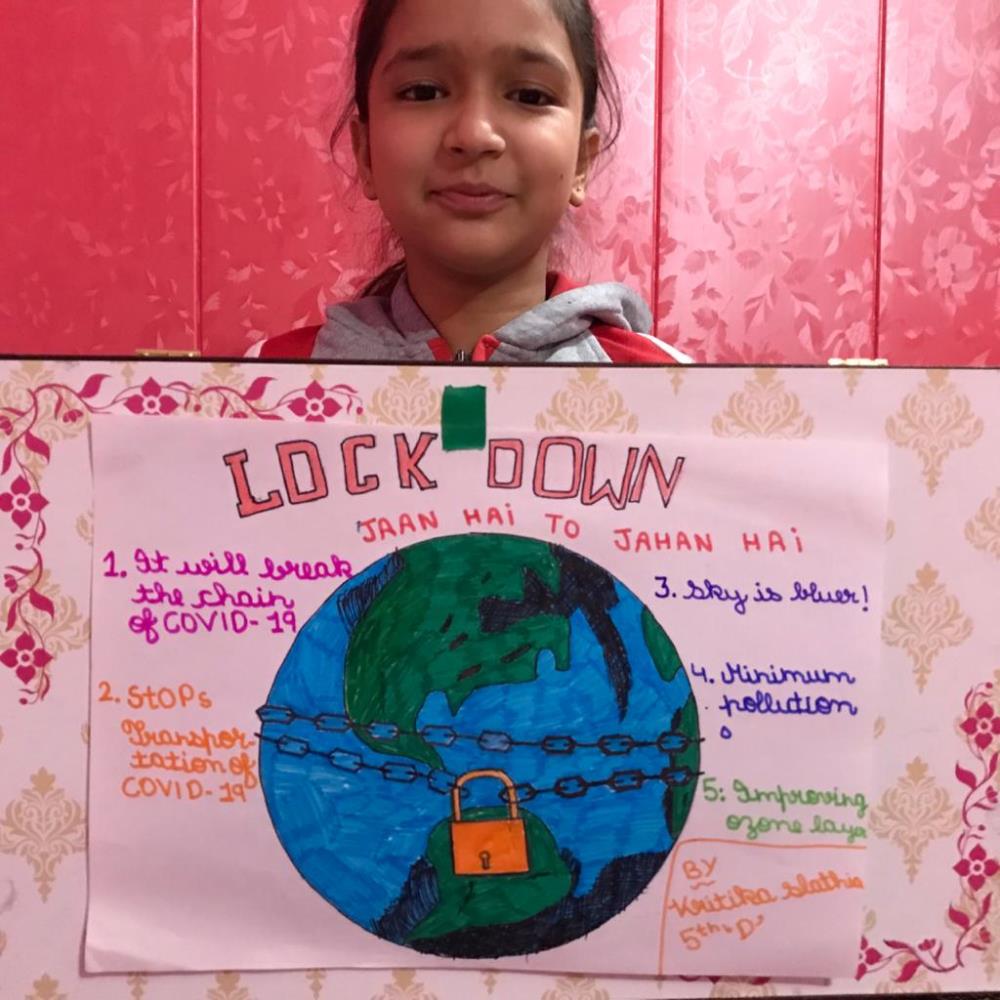 LOCK DOWN
JAAN HAi TO JAHAN HAi
1. It will break
the chain
of COVID-19
2. StOPs
Transpor-
tation of
COVID-19
3. Sky is bluer!
4. Minimum
pollution
5: Improving
ozone laye
BY
Kritika Slathia
5th 'D'